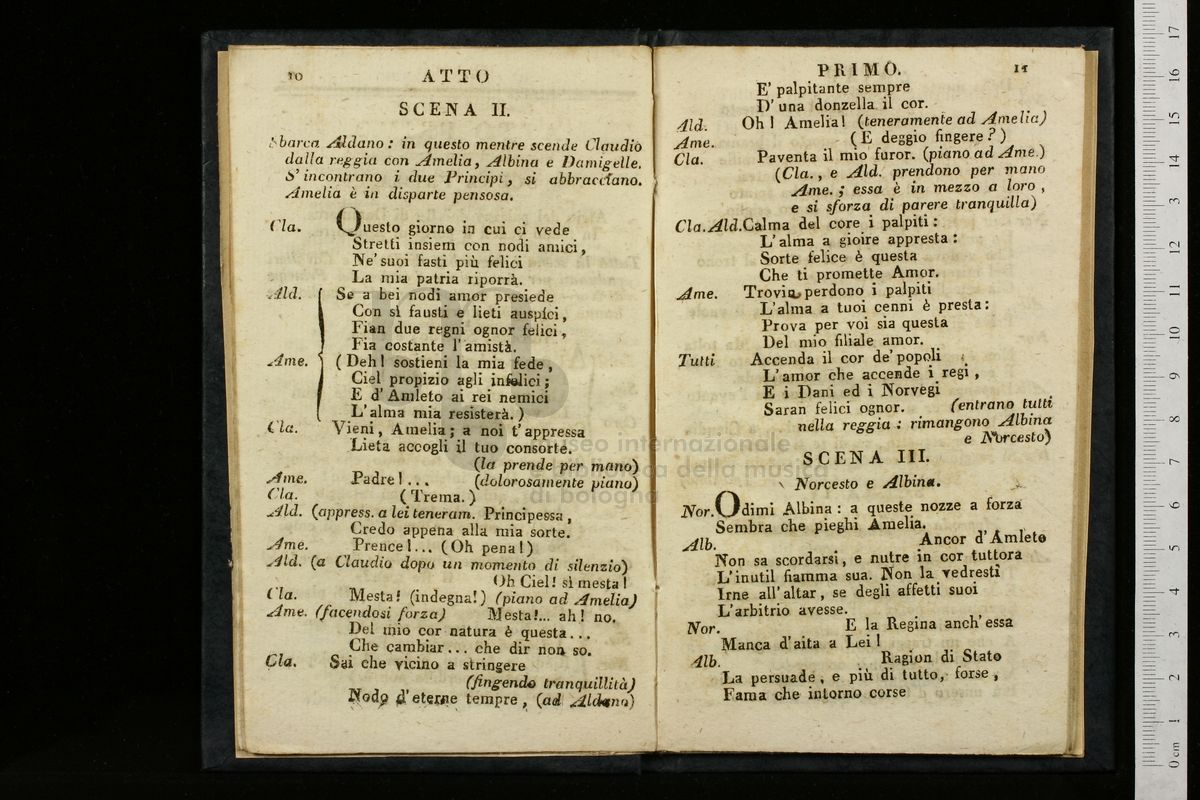 10 ATTO
SCENA II.
Sbarca Aldano: in questo mentre scende Claudio
dalla reggia con Amelia, Albina e Damigelle.
S'incontrano i due Principi, si abbracciano.
Amelia è in disparte pensosa.
Cla. Questo giorno in cui ci vede
Stretti insiem con nodi amici,
Ne' suoi fasti più felici
La mia patria riporrà.
Ald. Se a bei nodi amor presiede
Con sì fausti e lieti auspici,
Fian due regni ognor felici,
Fia costante l'amistà.
Ame. (Deh! sostieni la mia fede,
Ciel propizio agli infelici;
E d'Amleto ai rei nemici
L'alma mia resisterà.)
Cla. Vieni, Amelia; a noi t'appressa
Lieta accogli il tuo consorte.
(la prende per mano)
Ame. Padre!... (dolorosamente piano)
Cla. (Trema.)
Ald. (appress. a lei teneram. Principessa,
Credo appena alla mia sorte.
Ame. Prence!... (Oh pena!)
Ald. (a Claudio dopo un momento di silenzio)
Oh Ciel! sì mesta!
Cla. Mesta! (indegna!) (piano ad Amelia)
Ame. (facendosi forza) Mesta!... ah! no.
Del mio cor natura è questa...
Che cambiar... che dir non so.
Cla. Sai che vicino a stringere
(fingendo tranquillità)
Nodo d'eterne tempre, (ad Aldano)
PRIMO. 11
E' palpitante sempre
D'una donzella il cor.
Ald. Oh! Amelia! (teneramente ad Amelia)
Ame. (E deggio fingere?)
Cla. Paventa il mio furor. (piano ad Ame.)
(Cla., e Ald. prendono per mano
Ame.; essa è in mezzo a loro,
e si sforza di parere tranquilla)
Cla. Ald. Calma del core i palpiti:
L'alma a gioire appresta:
Sorte felice è questa
Che ti promette Amor.
Ame. Trovin perdono i palpiti
L'alma a tuoi cenni è presta:
Prova per voi sia questa
Del mio filiale amor.
Tutti Accenda il cor de' popoli
L'amor che accende i regi,
E i Dani ed i Norvegi
Saran felici ognor. (entrano tutti
nella reggia: rimangono Albina
e Norcesto)
SCENA III.
Norcesto e Albina.
Nor. Odimi Albina: a queste nozze a forza
Sembra che pieghi Amelia.
Alb. Ancor d'Amleto
Non sa scordarsi, e nutre in cor tuttora
L'inutil fiamma sua. Non la vedresti
Irne all'altar, se degli affetti suoi
L'arbitrio avesse.
Nor. E la Regina anch'essa
Manca d'aita a Lei!
Alb. Ragion di Stato
La persuade, e più di tutto, forse,
Fama che intorno corse
museo internazionale
e biblioteca della musica
di bologna
0 cm 1 2 3 4 5 6 7 8 9 10 11 12 13 14 15 16 17